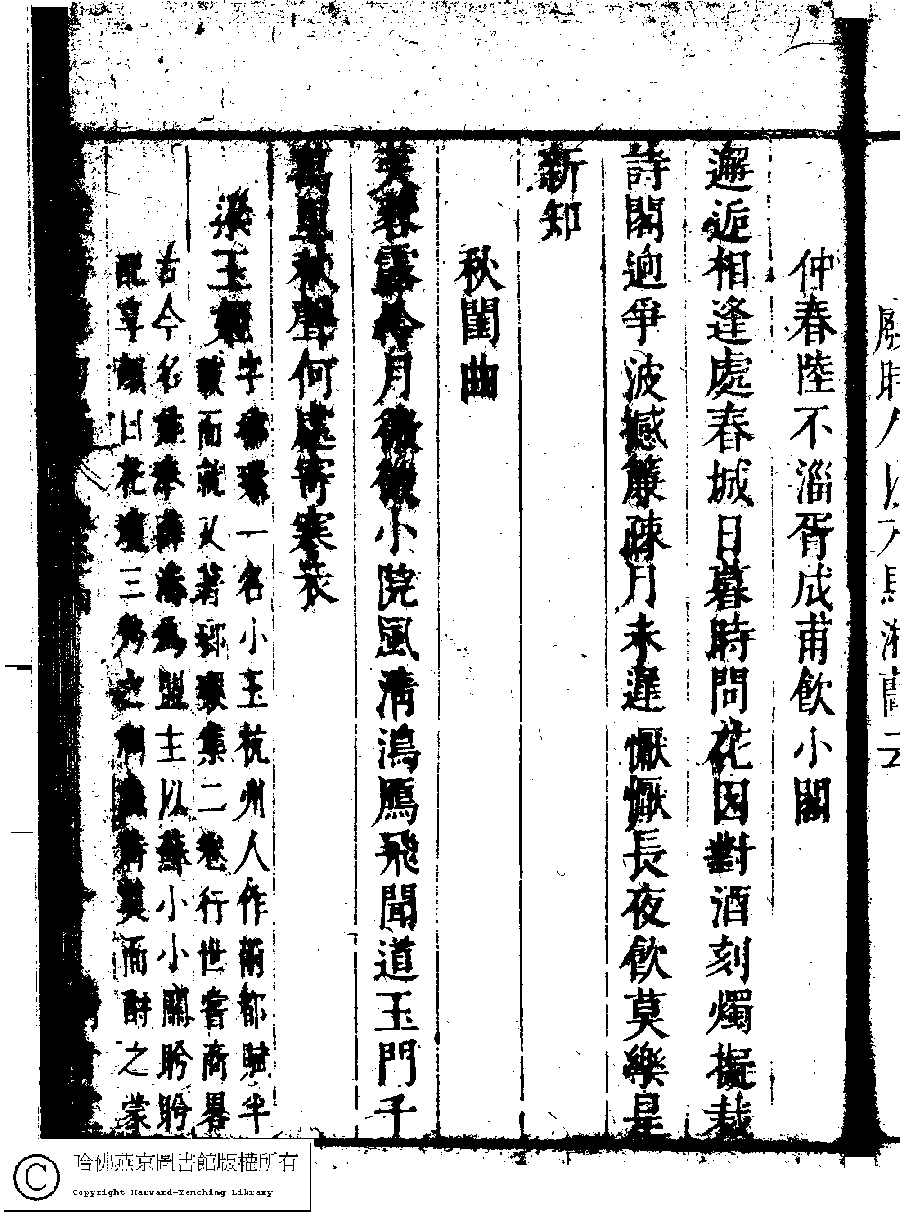 仲春陸不淄胥成甫飲小閣
邂逅相逢處春城日暮時問花因對酒刻燭擬裁
詩閣迥爭波撼簾疎月未遲懨懨長夜飲莫樂是
新知
秋閨曲
芙蓉露冷月微微小院風清鴻鴈飛聞道玉門千
萬里秋聲何處寄寒衣
梁玉姬
字 一名小玉杭州人作兩都賦半
載而就又著 集二卷行世嘗商畧
古今名 為盟主以蘇小小關盼盼
配享 曰花壇三 之 而酹之蒙
哈佛燕京圖書館版權所有
Copyright Harvard-Yenching Library